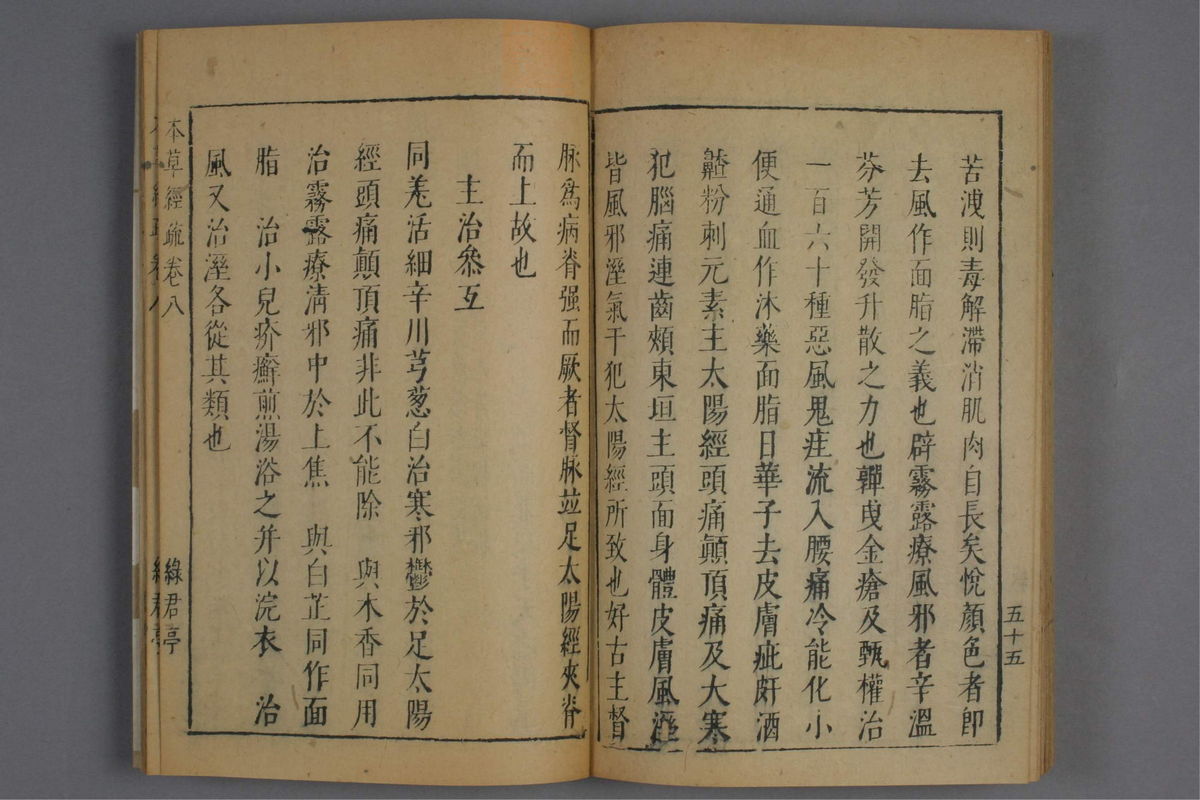 五十五
苦洩則毒解滯消肌肉自長矣悅顏色者即
去風作面脂之義也辟霧露療風邪者辛溫
芬芳開發升散之力也鼾曵金瘡及甄權治
一百六十種惡風鬼疰流入腰痛冷能化小
便通血作沐藥面脂日華子去皮膚疵皯酒
齇粉刺元素主太陽經頭痛顚頂痛及大寒
犯腦痛連齒頰東垣主頭面身體皮膚風溼
皆風邪溼氣干犯太陽經所致也好古主督
脉爲病脊强而厥者督脉並足太陽經夾脊
而上故也
主治叅互
同羗活細辛川芎蔥白治寒邪鬱於足太陽
經頭痛顚頂痛非此不能除　與木香同用
治霧露療清邪中於上焦　與白芷同作面
脂　治小兒疥癬煎湯浴之并以浣衣　治
風又治溼各從其類也
本草經疏卷八
綠君亭